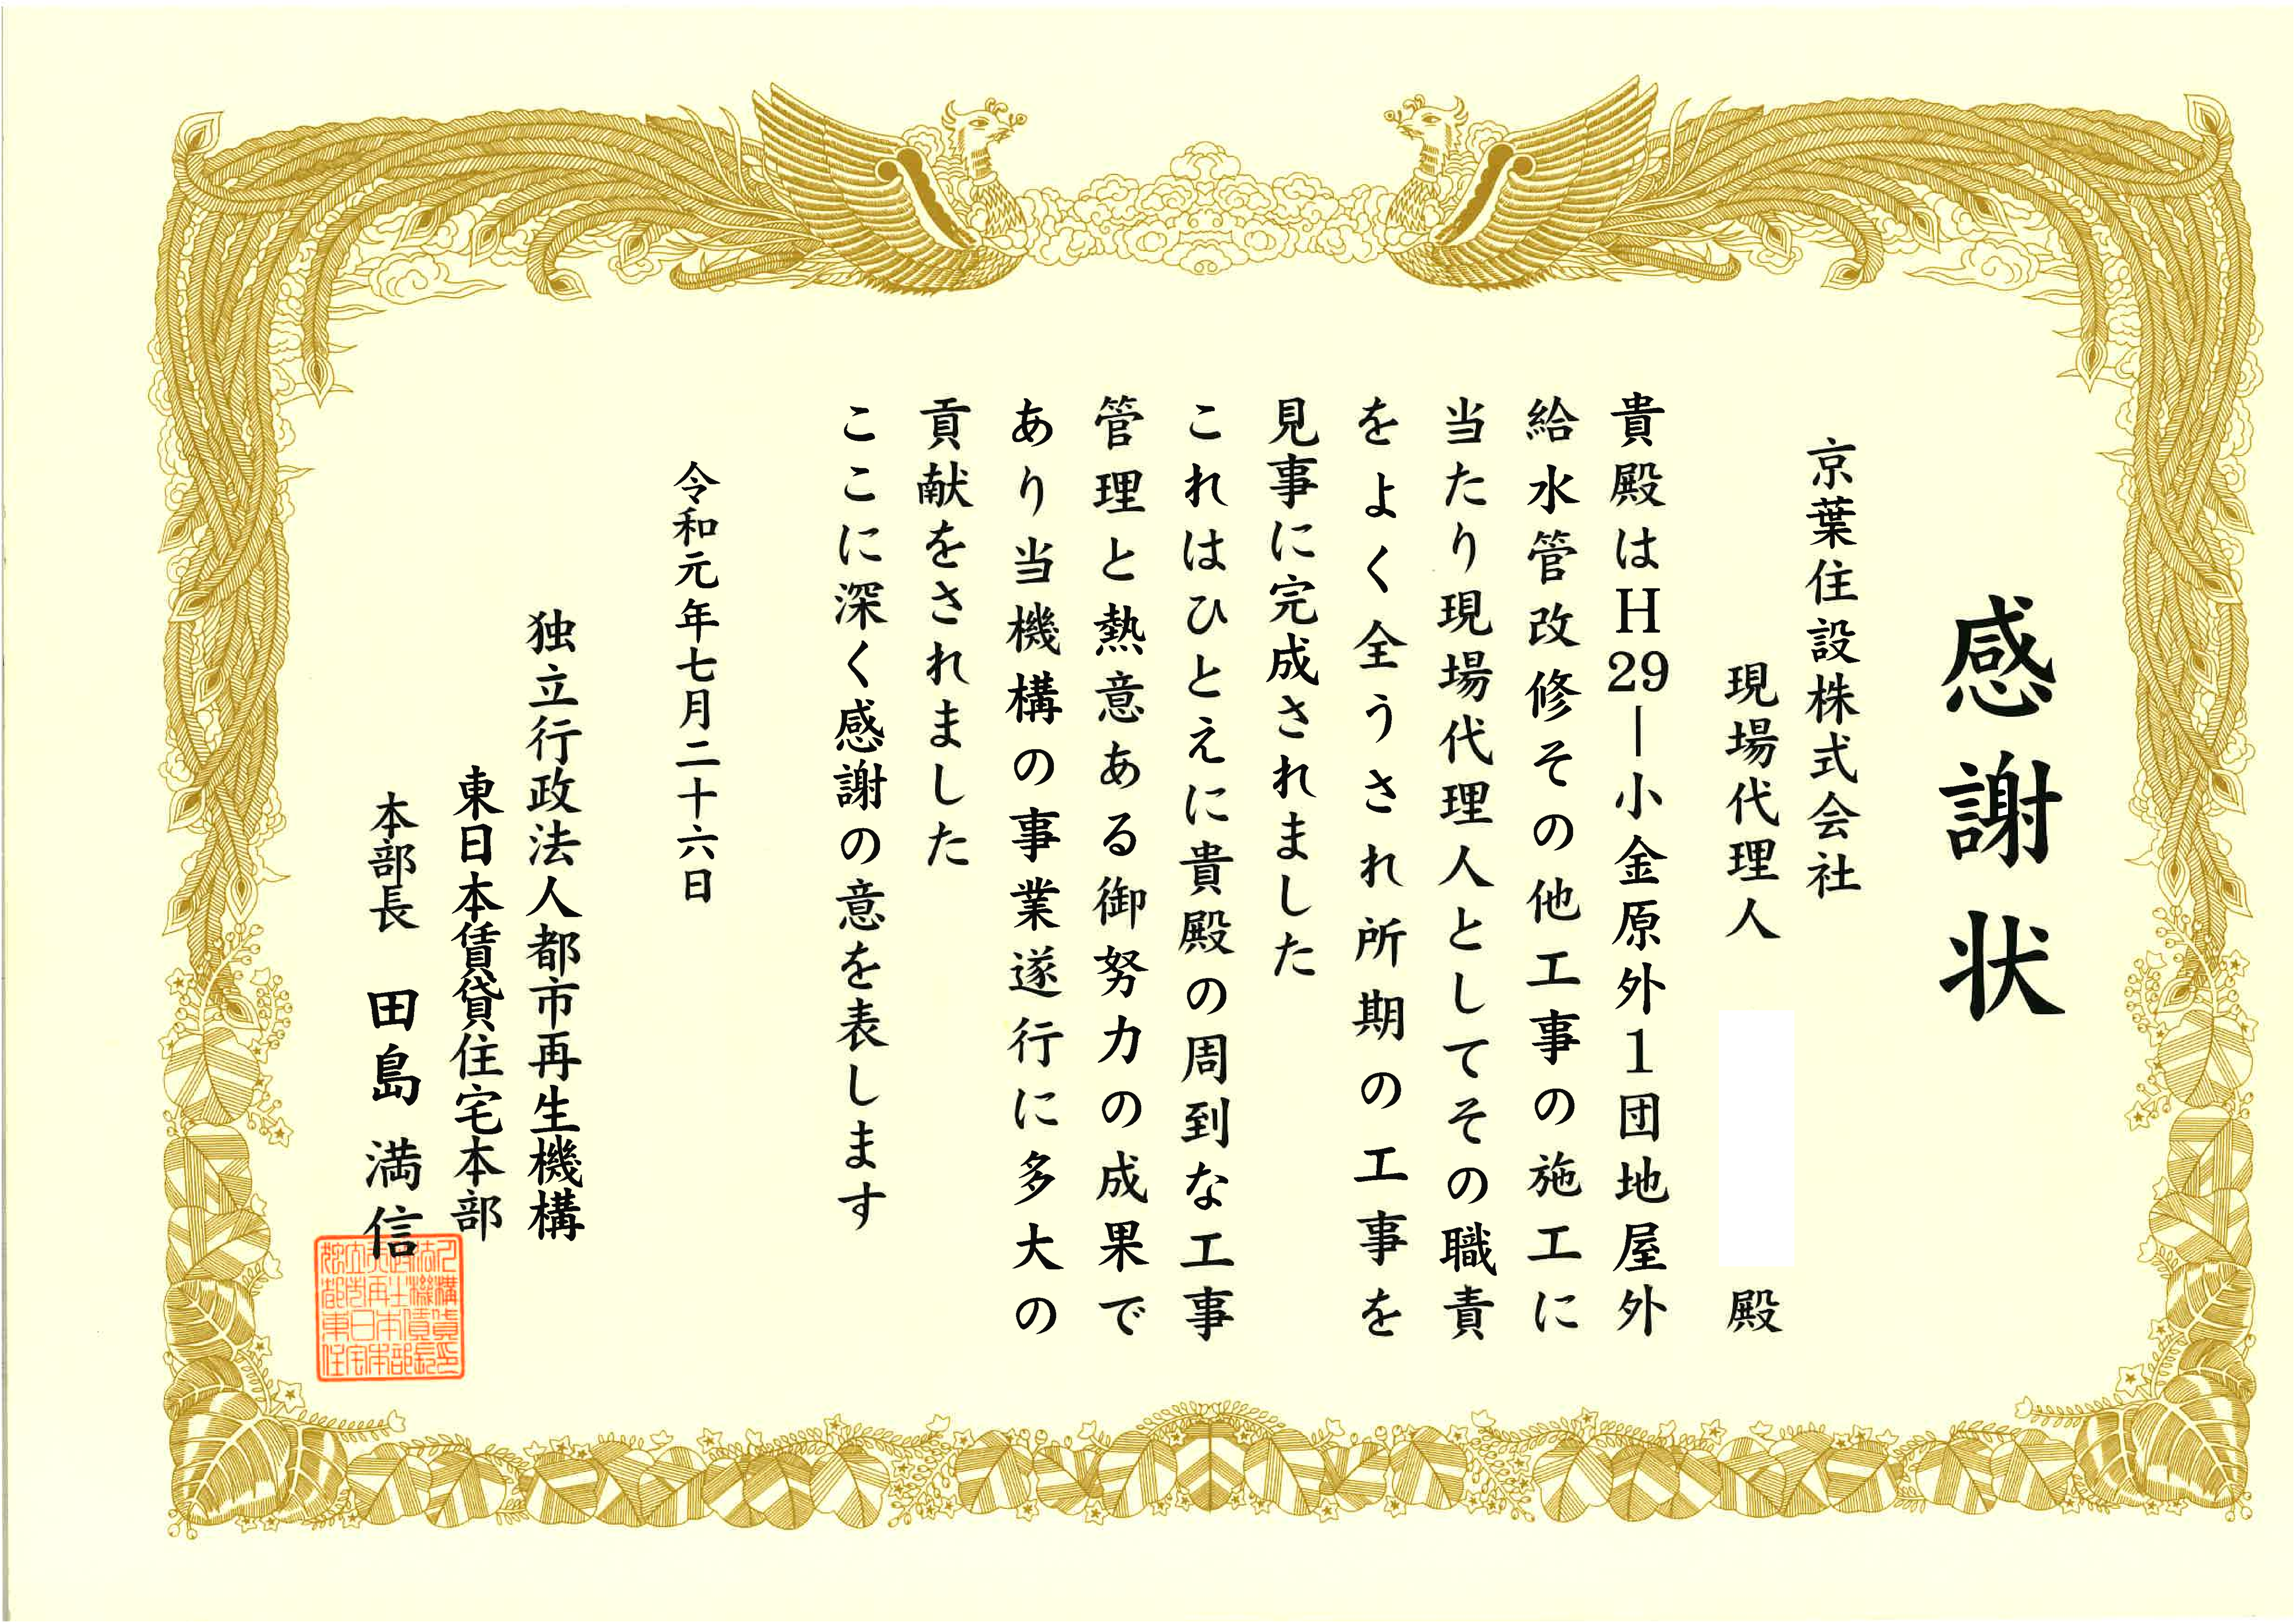 感謝状
京葉住設株式会社
現場代理人 殿
貴殿はH29―小金原外1団地屋外
給水管改修その他工事の施工に
当たり現場代理人としてその職責
をよく全うされ所期の工事を
見事に完成されました
これはひとえに貴殿の周到な工事
管理と熱意ある御努力の成果で
あり当機構の事業遂行に多大の
貢献をされました
ここに深く感謝の意を表します
令和元年七月二十六日
独立行政法人都市再生機構
東日本賃貸住宅本部
本部長 田島満信